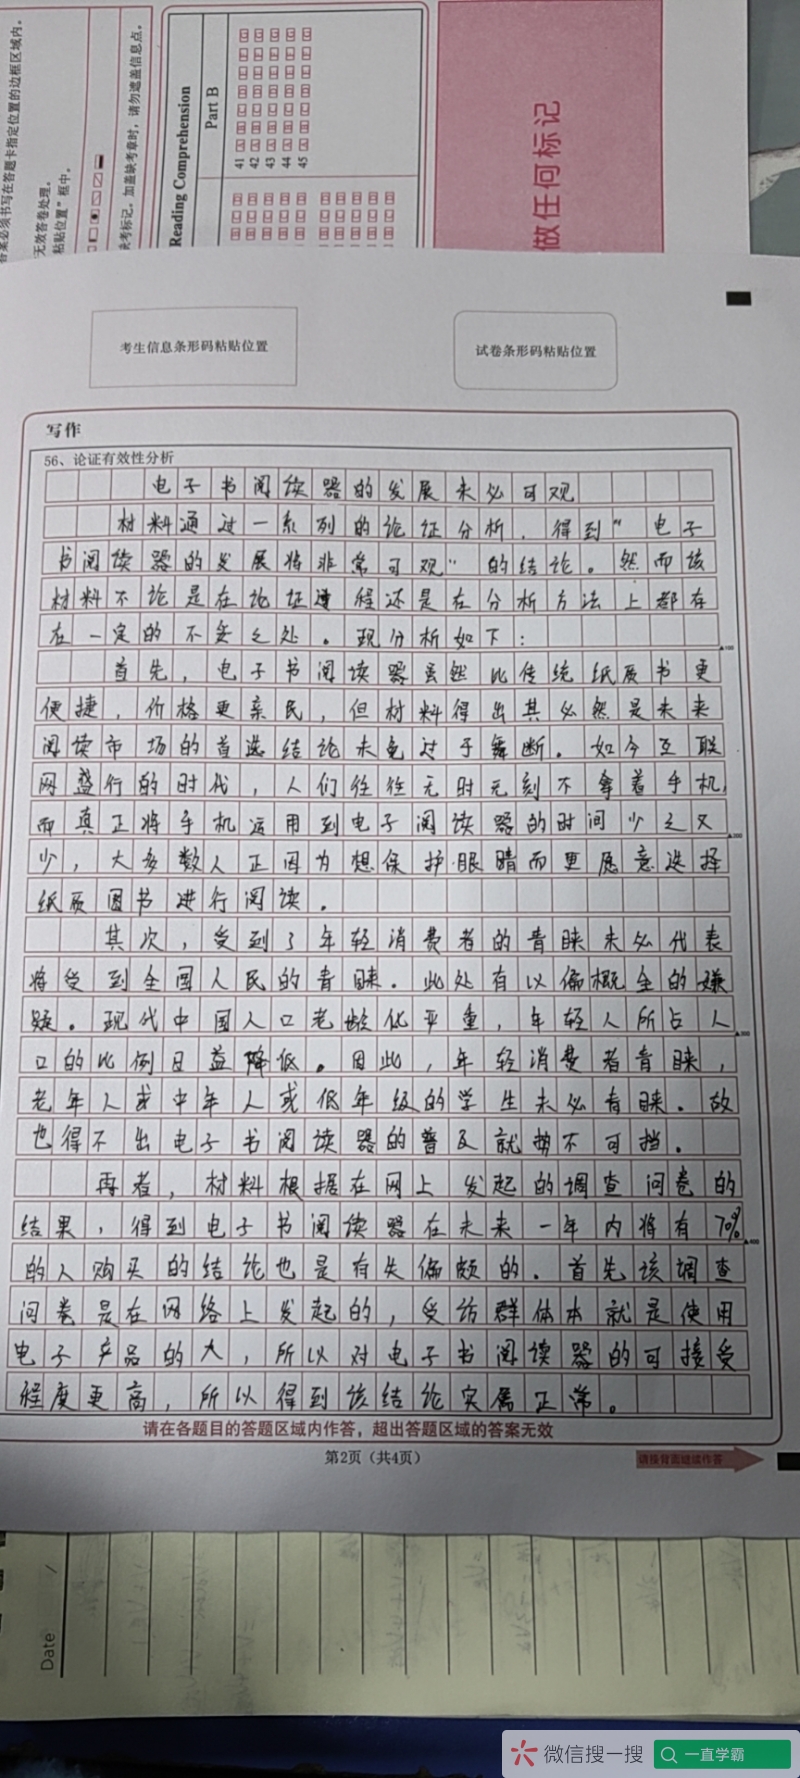 答案必须书写在答题卡指定位置的边框区域内。
无效答卷处理。
粘贴位置”框中。
缺考标记。加盖缺考章时，请勿遮盖信息点。
Reading Comprehension
Part B
41
42
43
44
45
做任何标记
考生信息条形码粘贴位置
试卷条形码粘贴位置
写作
56、论证有效性分析
电子书阅读器的发展未必可观
材料通过一系列的论证分析，得到“电子
书阅读器的发展将非常可观”的结论。然而该
材料不论是在论证过程还是在分析方法上都存
在一定的不妥之处。现分析如下：
首先，电子书阅读器虽然比传统纸质书更
便捷，价格更亲民，但材料得出其必然是未来
阅读市场的首选结论未免过于舞断。如今互联
网盛行的时代，人们往往无时无刻不拿着手机，
而真正将手机运用到电子阅读器的时间少之又
少，大多数人正因为想保护眼睛而更愿意选择
纸质图书进行阅读。
其次，受到了年轻消费者的青睐未必代表
将受到全国人民的青睐。此处有以偏概全的嫌
疑。现代中国人口老龄化严重，年轻人所占人
口的比例日益降低。因此，年轻消费者青睐，
老年人或中年人或低年级的学生未必青睐。故
也得不出电子书阅读器的普及就势不可挡。
再者，材料根据在网上发起的调查问卷的
结果，得到电子书阅读器在未来一年内将有70%
的人购买的结论也是有失偏颇的。首先该调查
问卷是在网络上发起的，受访群体本就是使用
电子产品的大，所以对电子书阅读器的可接受
程度更高，所以得到该结论实属正常。
请在各题目的答题区域内作答，超出答题区域的答案无效
第2页（共4页）
请接背面继续作答
Date
微信搜一搜
一直学霸